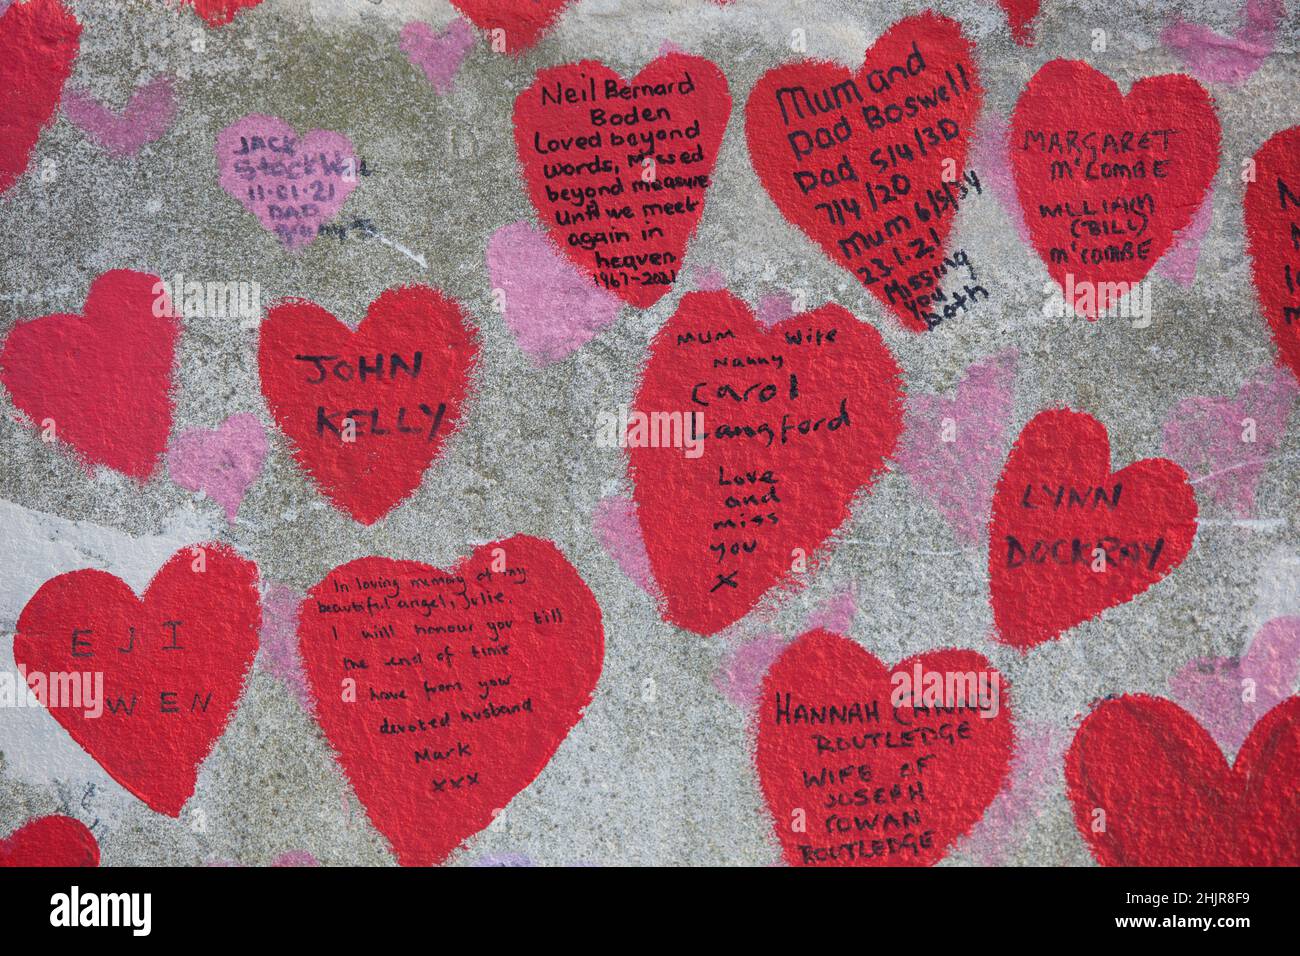 JACK
Stockwell
11.01.21
DAD
Neil Bernard
Boden
Loved beyond
words, missed
beyond measure
Until we meet
again in
heaven
1967-2021
Mum and
Dad Boswell
Dad 5/4/30
7/4/20
Mum 6/5/34
23.1.21
Missing
you
both
MARGARET
McCOMBE
WILLIAM
(BILL)
McCOMBE
JOHN
KELLY
MUM WIFE
Nanny
Carol
Langford
Love
and
miss
you
X
LYNN
DOCKRAY
EJI
WEN
In loving memory of my
beautiful angel, Julie.
I will honour you till
the end of time
love from your
devoted husband
Mark
xxx
HANNAH (ANN)
ROUTLEDGE
WIFE OF
JOSEPH
COWAN
ROUTLEDGE
alamy
Image ID: 2HJR8F9
www.alamy.com